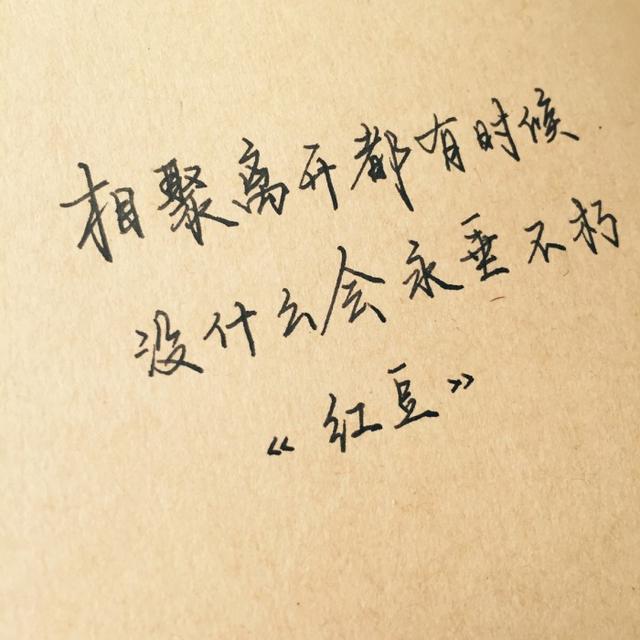 相聚离开都有时候
没什么会永垂不朽
《红豆》